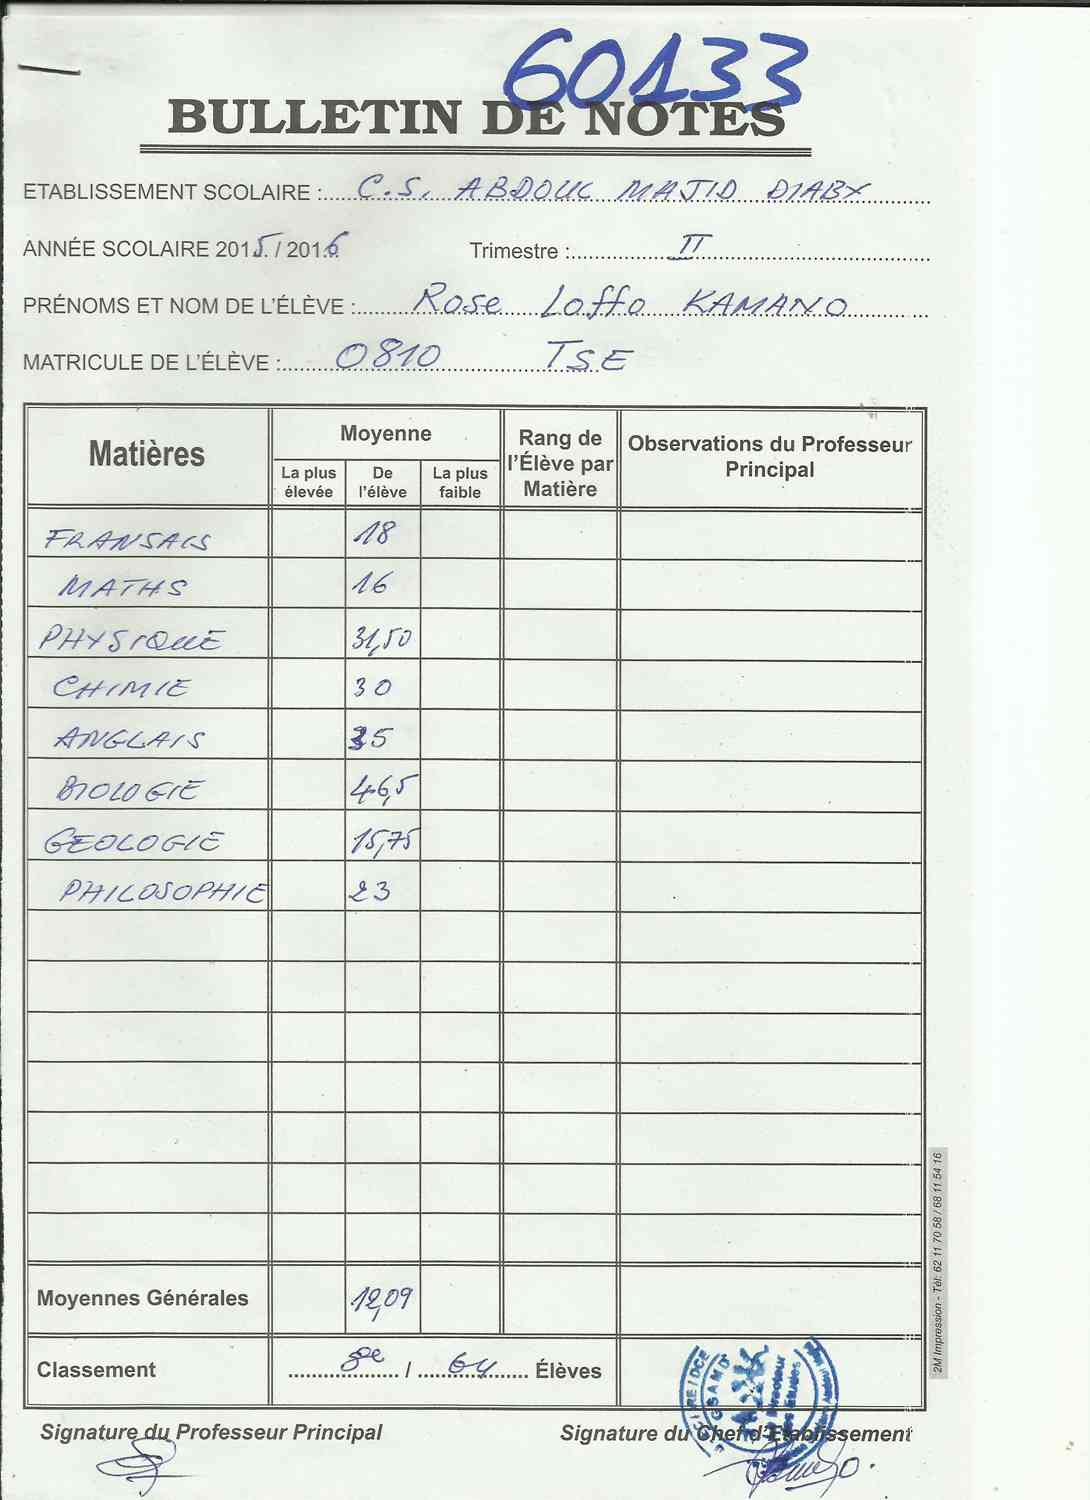 60133
BULLETIN DE NOTES
ETABLISSEMENT SCOLAIRE : C.S. ABDOUL MAJID DIABY
ANNÉE SCOLAIRE 2015 / 2016 Trimestre : II
PRÉNOMS ET NOM DE L'ÉLÈVE : Rose Loffo KAMANO
MATRICULE DE L'ÉLÈVE : 0810 TSE
Matières Moyenne Rang de l'Élève par Matière Observations du Professeur Principal
La plus élevée De l'élève La plus faible
FRANSAIS 18
MATHS 16
PHYSIQUE 31,50
CHIMIE 30
ANGLAIS 35
BIOLOGIE 46,5
GEOLOGIE 15,75
PHILOSOPHIE 23
Moyennes Générales 12,09
Classement 8e / 64 Élèves
Signature du Professeur Principal Signature du Chef d'Etablissement
Directeur
des Etudes
2M Impression - Tél: 62 11 70 58 / 68 11 54 16